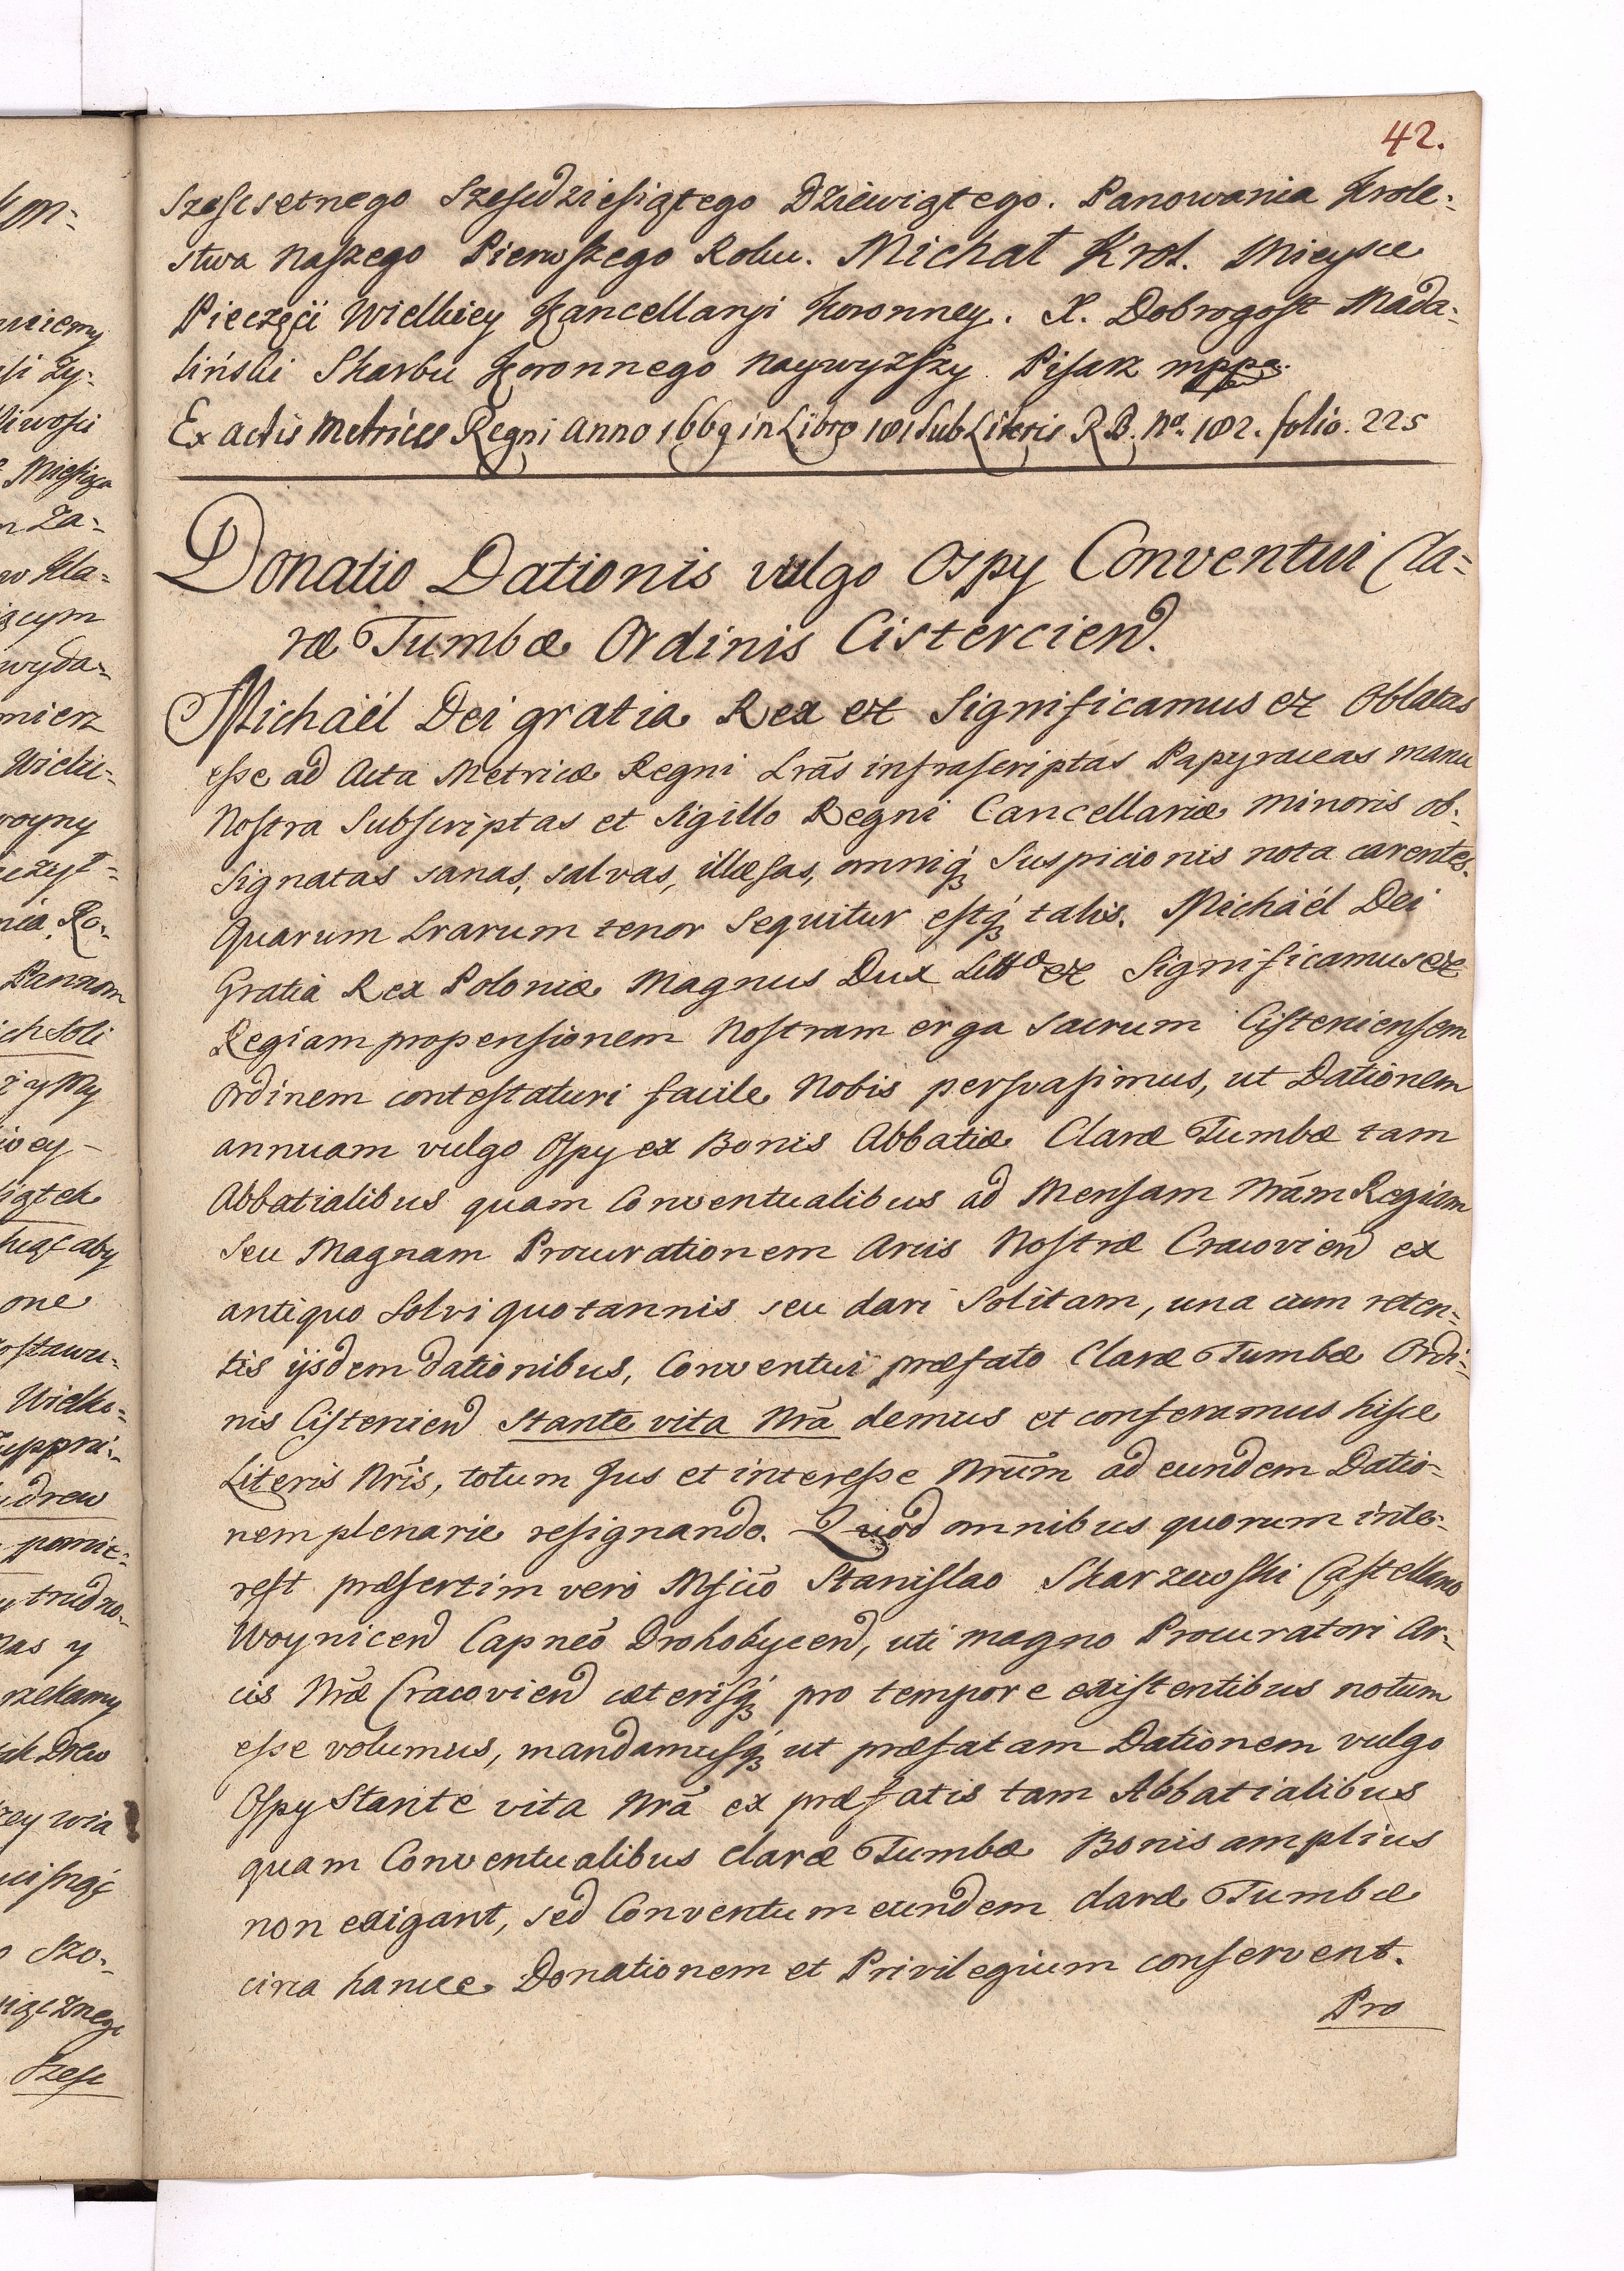 42.
Szescsetnego Szescdziesiątego Dziewiątego. Panowania Krole-
stwa Naszego Pierwszego Roku. Michał Krol. Mieysce
Pieczęci Wielkiey Kancellaryi Koronney. X. Dobrogost Mada-
liński Skarbu Koronnego Naywyższy Pisarz mppa.
Ex Actis Metrices Regni Anno 1669 in Libro 181 Sub Literis R.B. No. 182. folio. 225
Donatio Dationis vulgo Ospy Conventui Cla-
ræ Tumbæ Ordinis Cisterciend.
Michaël Dei gratia Rex etc Significamus etc Oblatas
esse ad Acta Metricæ Regni Lrãs infrascriptas Papyraceas manu
Nostra Subscriptas et Sigillo Regni Cancellariæ Minoris ob-
signatas sanas, salvas, illæsas, omniq́ꝫ Suspicionis nota carentes.
Quarum Lrarum tenor Sequitur estq́ꝫ talis. Michaël Dei
Gratia Rex Poloniæ Magnus Dux Litt etc Significamus etc
Regiam propensionem Nostram erga Sacrum Cisterciensem
Ordinem contestaturi facile Nobis persvasimus, ut Dationem
annuam vulgo Ospy ex Bonis Abbatiæ Claræ Tumbæ tam
Abbatialibus quam Conventualibus ad Mensam Nrãm Regiam
seu Magnam Procurationem Arcis Nostræ Cracoviend ex
antiquo Solvi quotannis seu dari Solitam, una cum reten-
tis ijsdem dationibus, Conventui præfato Claræ Tumbæ Ordi-
nis Cisterciend Stante vita Nrã demus et conferamus hisce
Literis Nrĩs, totum Jus et interesse Nrũm ad eundem Datio-
nem plenarie resignando. Quod omnibus quorum inte-
rest præsertim vero Mfico Stanislao Skarzewski Castellano
Woynicend Capneo Drohobycend, uti magno Procuratori Ar-
cis Nræ Cracoviend cæterisq́ꝫ pro tempore existentibus notum
esse volumus, mandamusq́ꝫ ut præfatam Dationem vulgo
Ospy Stante vita Nrã ex præfatis tam Abbatialibus
quam Conventualibus claræ Tumbæ Bonis amplius
non exigant, sed Conventum eundem claræ Tumbæ
circa hancce Donationem et Privilegium conservent.
Pro